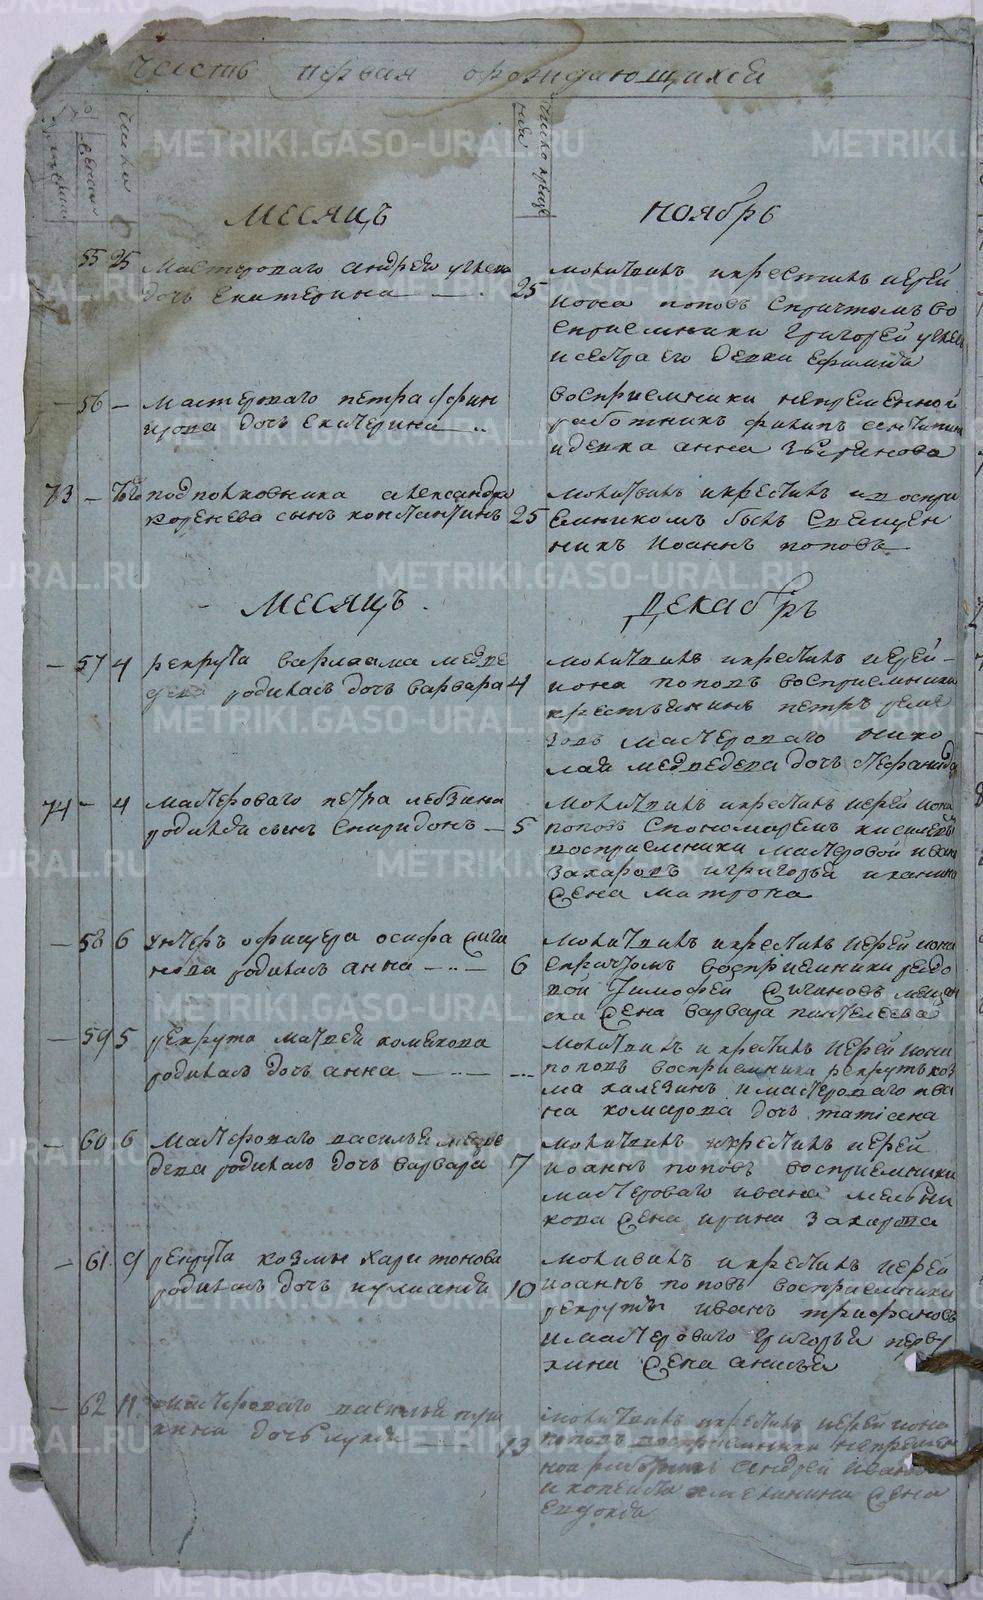 Часть первая орождающихся
числа
число креще
ния
месяцъ ноябрь
55 25 Мастероваго андрея
дочь Екатерина 25
молитвилъ икрестилъ иерей
иона поповъ спричтомъ во
сприемники григорей
исестра его девка
56 мастероваго петра
дочь екатерина
восприемники непременной
работникъ филипъ
идевка анна
73 подполковника александра
коренева сынъ константинъ 25
молитвилъ икрестилъ ивоспри
емникомъ былъ священ
никъ иоаннъ поповъ
месяцъ декабрь
57 4 рекрута варлаама медве
дева родилась дочь варвара 4
молитвилъ икрестилъ иерей
иона поповъ восприемники
крестьянинъ петръ реме
зовъ мастероваго нико
лая медведева дочь
74 4 мастероваго петра лебзина
родился сынъ спиридонъ 5
молитвилъ икрестилъ иерей иона
поповъ спономаремъ киселевы
восприемники мастеровой иванъ
захаровъ игригорья
жена матрона
58 6 унтеръ офицера осифа
родилась анна 6
молитвилъ икрестилъ иерей иона
спричтомъ восприемники рядо
вой тимофей
жена варвара пантелеева
59 5 рекрута матвея комякова
родилась дочь анна
молитвилъ икрестилъ иерей иона
поповъ восприемники рекрутъ коз
ма калезинъ имастероваго ива
на комарова дочь татиана
60 6 мастероваго василья медве
дева родилась дочь варвара 7
молитвилъ икрестилъ иерей
иоаннъ поповъ восприемники
мастероваго ивана мельни
кова жена ирина захарова
61 9 рекрута козмы харитонова
родилась дочь иулиания 10
моливилъ икрестилъ иерей
иоаннъ поповъ восприемники
рекрутъ иванъ трифановъ
имастероваго григорья перву
хина жена анисья
62 11 мастероваго василья
дочь лукия 13
молитвилъ икрестилъ иерей иона
поповъ восприемники непремен
ной работникъ андрей
жена
евдокия
METRIKI.GASO-URAL.RU